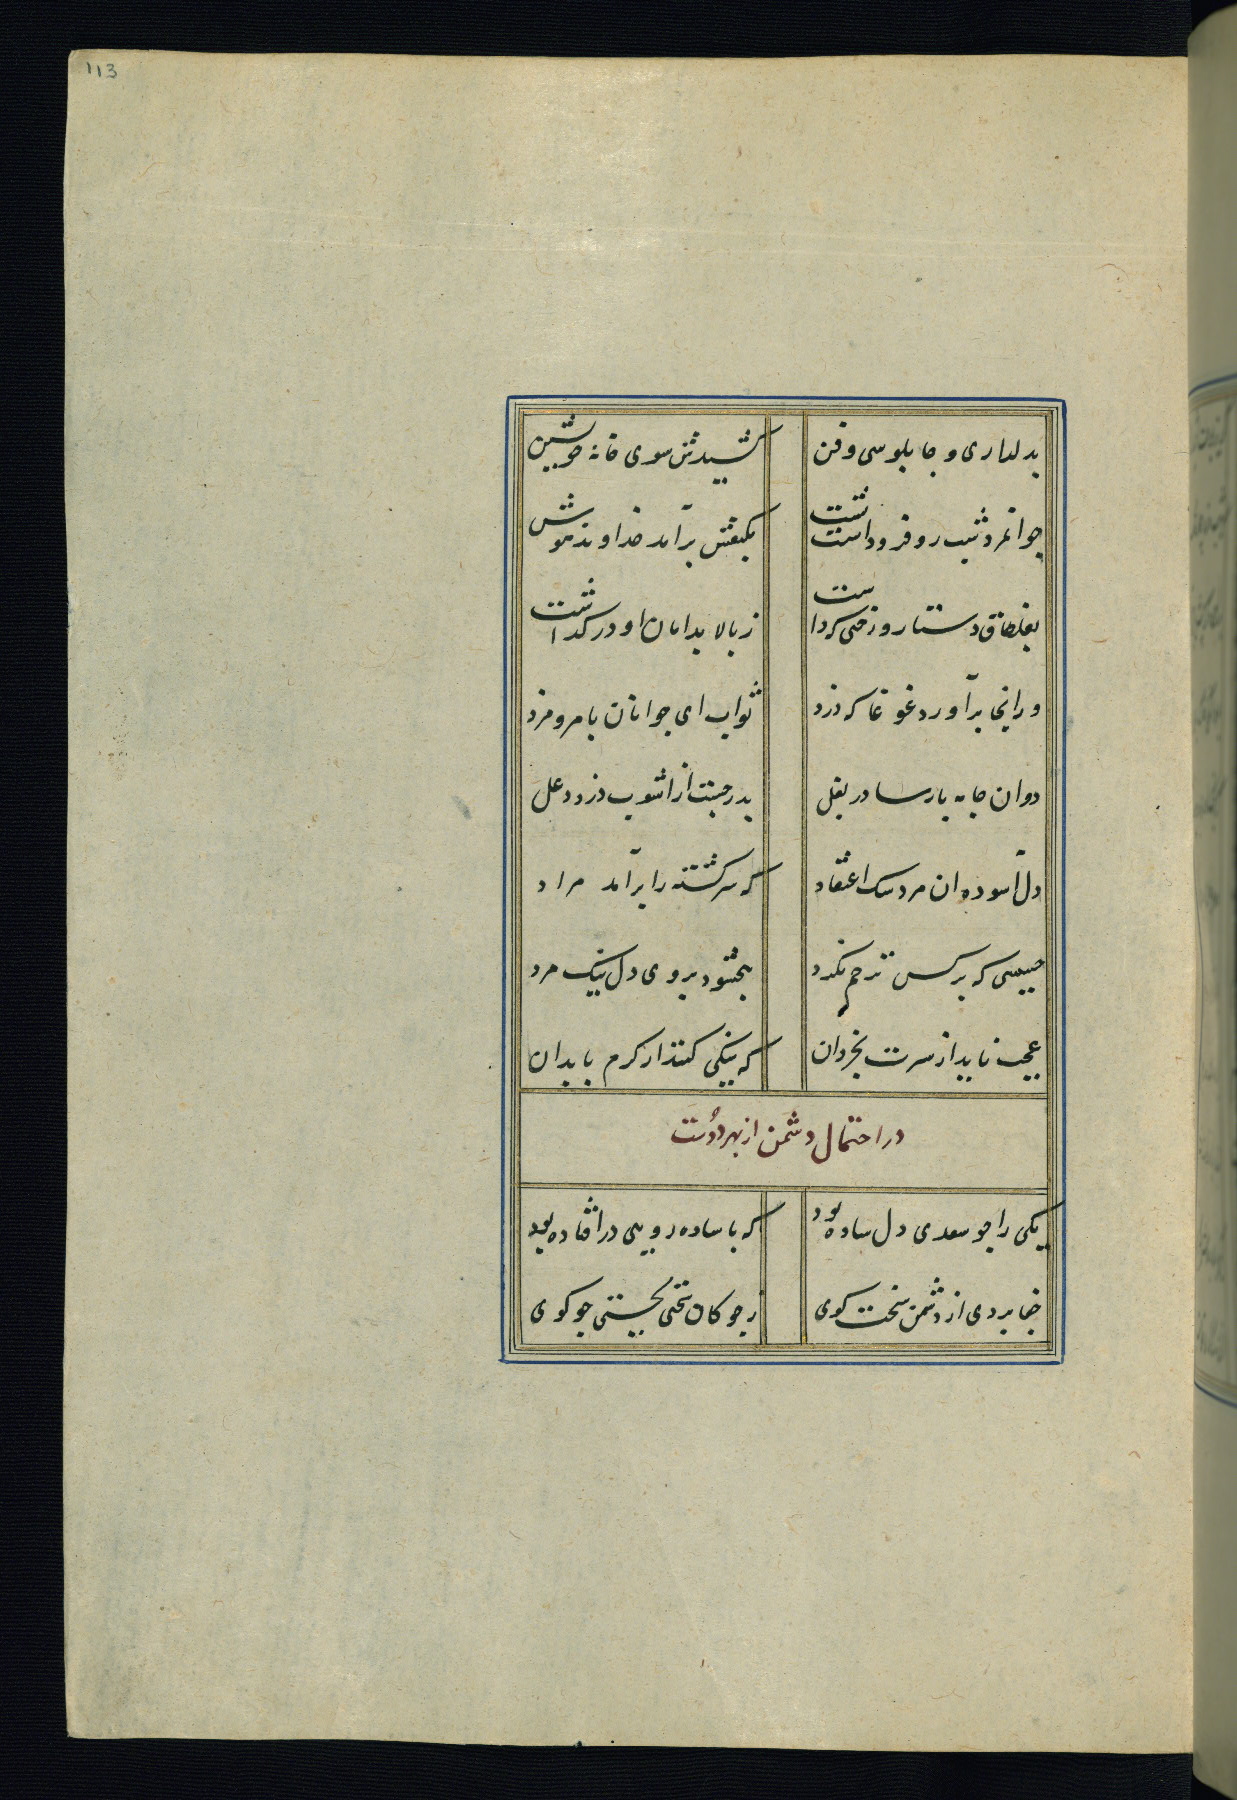 113
بدلداری و چاپلوسی و فن کشیدش سوی خانه خویشتن
جوانمرد شب رو فرو داشت دوش بکتفش برآمد خداوند هوش
بغلطاق و دستار و رختی که داشت ز بالا بدامان او در گذاشت
وزانجا برآورد غوغا که دزد ثواب ای جوانان یا مرو مزد
بدر جست از آشوب دزد دغل دوان جامه پارسا در بغل
دل آسوده آن مرد نیک اعتقاد که سرگشته را برآمد مراد
خبیثی که بر کس ترحم نکرد ببخشود بر وی دل نیک مرد
عجب ناید از سیرت بخردان که نیکی کنند از کرم با بدان
در احتمال دشمن از بهر دوست
یکی را چو سعدی دل ساده بود که با ساده رویی در افتاده بود
جفا بردی از دشمن سخت گوی ز چوگان سختی بجستی چو گوی